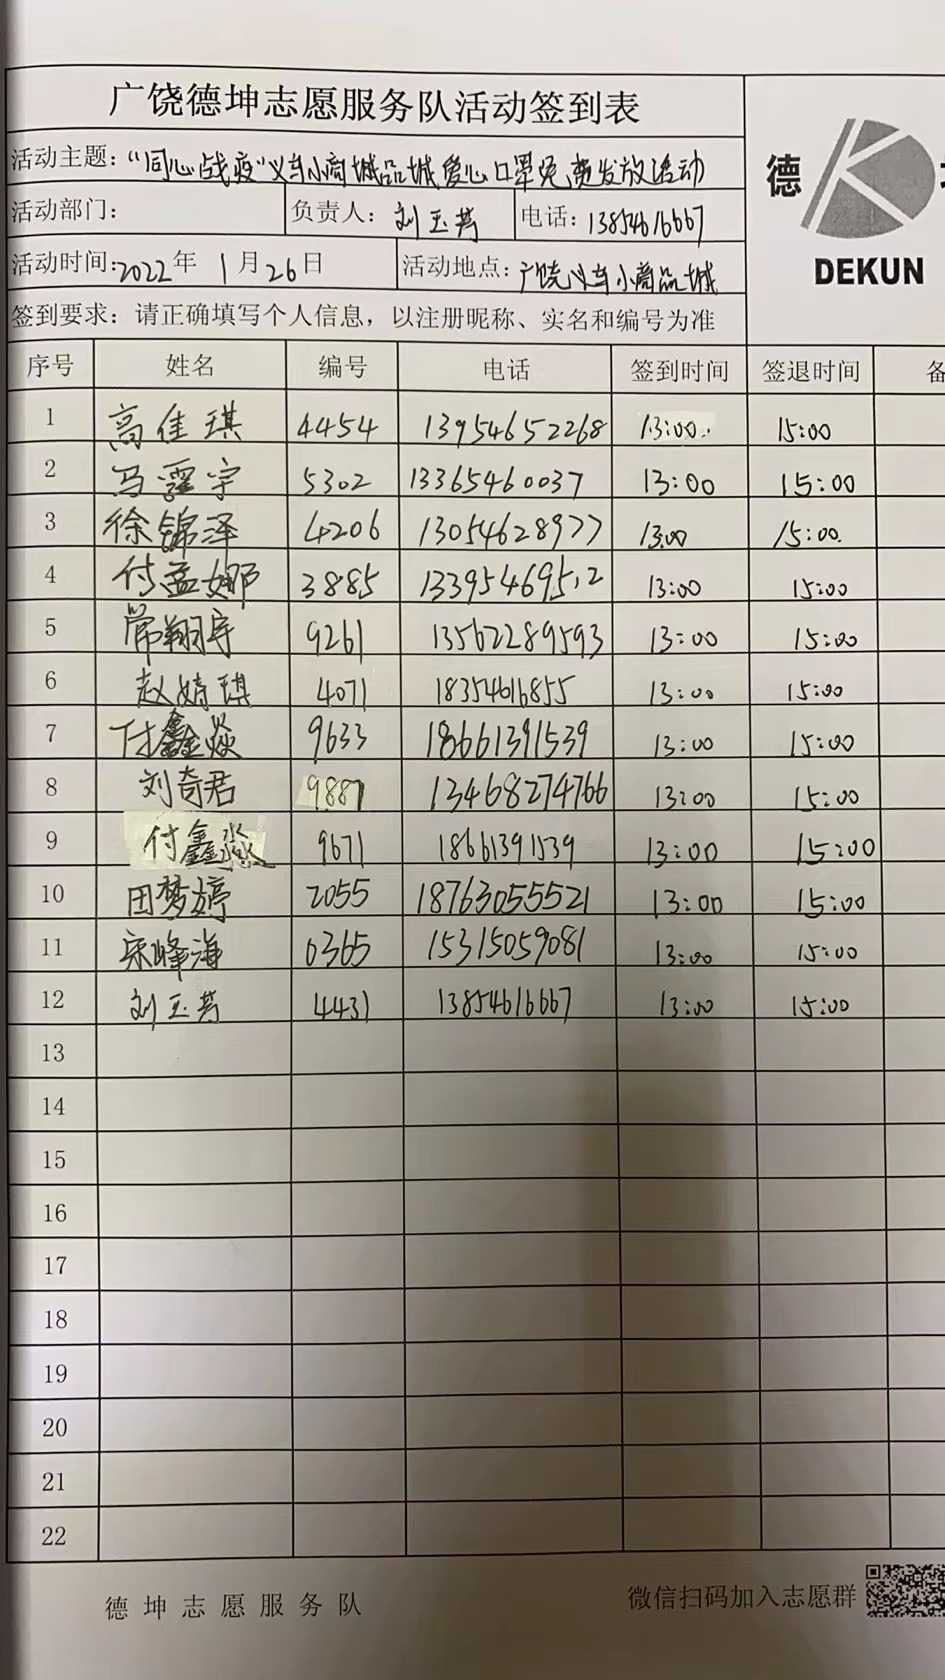 广饶德坤志愿服务队活动签到表
活动主题："同心战疫"义乌小商城品城爱心口罩免费发放活动
活动部门： 负责人：刘玉芳 电话：13854616667
活动时间：2022年 1月26日 活动地点：广饶义乌小商品城
签到要求：请正确填写个人信息，以注册昵称、实名和编号为准
德
DEKUN
序号 姓名 编号 电话 签到时间 签退时间 备
1 高佳琪 4454 13954652268 13:00 15:00
2 马霏宇 5302 13365460037 13:00 15:00
3 徐锦泽 4206 13054628977 13:00 15:00
4 付孟娜 3885 13395469512 13:00 15:00
5 常翔宇 9261 13562289593 13:00 15:00
6 赵婧琪 4071 18354616855 13:00 15:00
7 付鑫焱 9633 18661391539 13:00 15:00
8 刘奇君 9887 13468274766 13:00 15:00
9 付鑫淼 9671 18661391539 13:00 15:00
10 田梦婷 2055 18763055521 13:00 15:00
11 宋峰海 0365 15315059081 13:00 15:00
12 刘玉芳 4431 13854616667 13:00 15:00
13
14
15
16
17
18
19
20
21
22
德坤志愿服务队 微信扫码加入志愿群